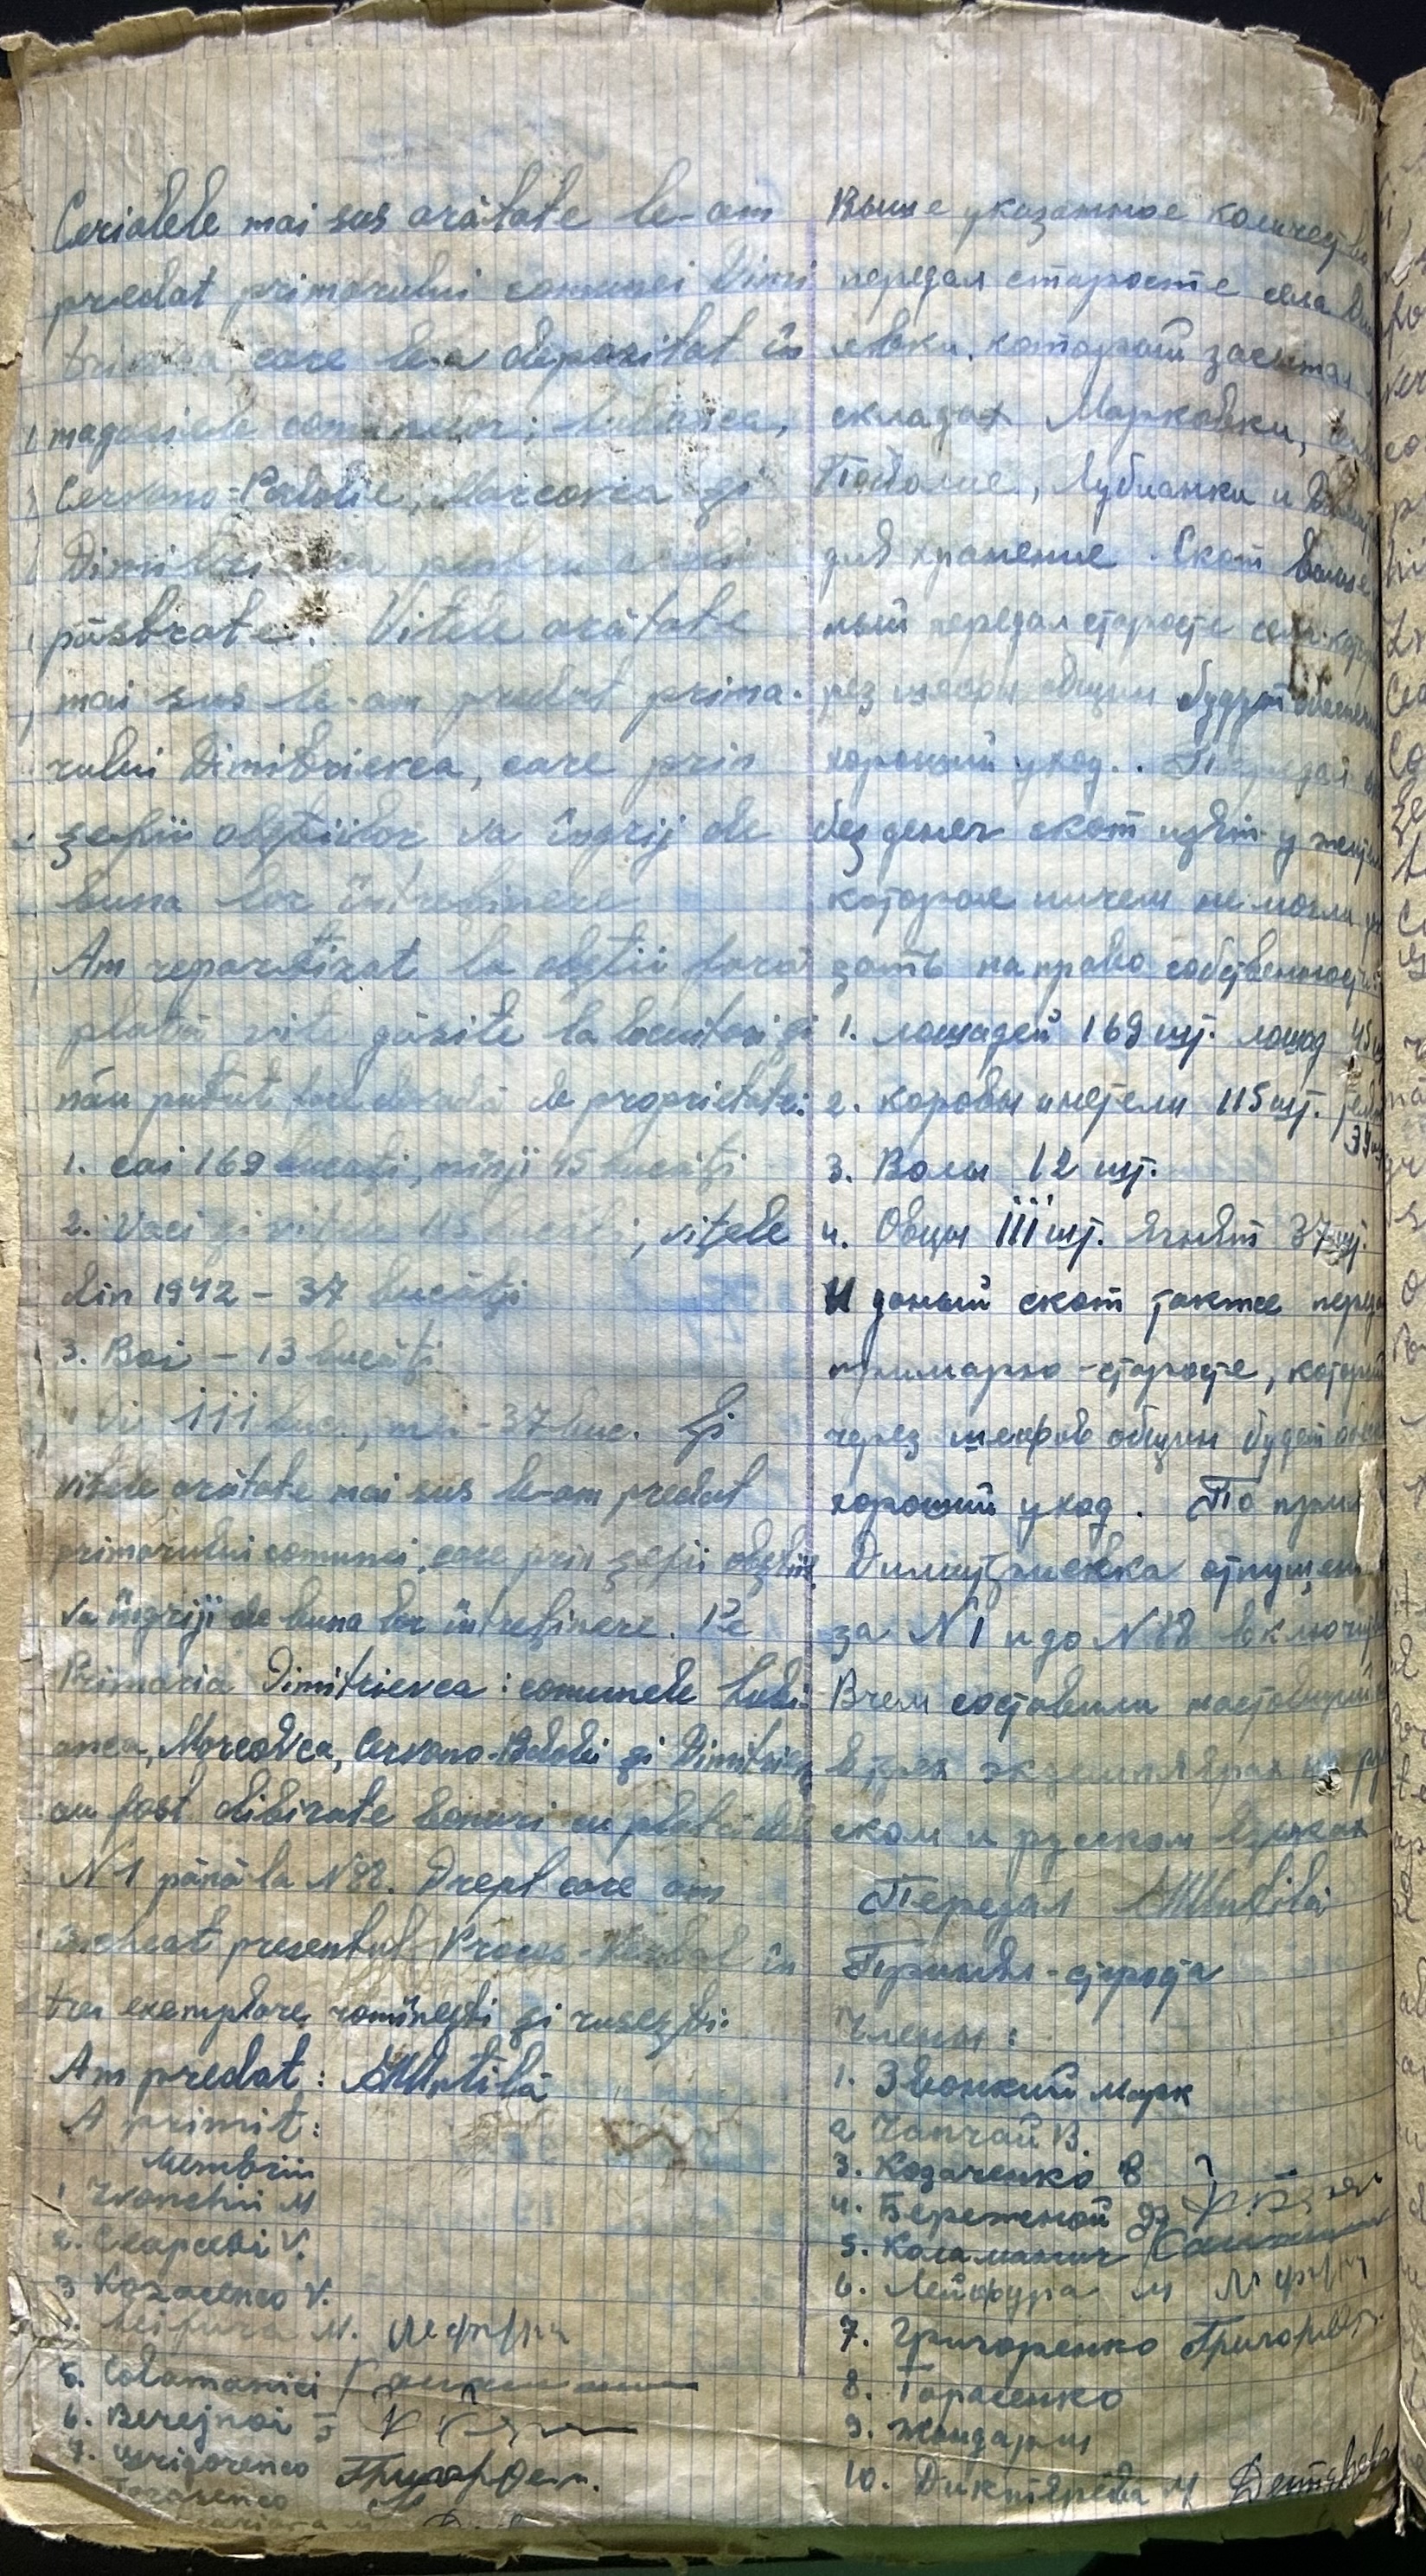 Cerialele mai sus arătate le-am
predat primarului comunei Dimi
trievca, care le-a depozitat în
magaziile comunelor; Lubianca,
Cervono-Podolie, Marcovca și
Dimitrievca pentru a fi
păstrate. Vitele arătate
mai sus le-am predat prima-
rului Dimitrievca, care prin
șefii obștiilor va îngrij de
buna lor întreținere
Am repartizat la obștii fară
plată vite găsite la locuitori și
nău putut face dovadă de proprietate:
1. cai 169 bucați, mînji 45 bucăți
2. Vaci și 115 ; vițele
din 1942 - 37 bucăți
3. Boi - 13 bucăți
111 buc., - 37 buc. Și
vitele arătate mai sus le-am predat
primarului comunei, care prin șefii obștii
va îngriji de buna lor întreținere. Pe
Primăria Dimitrievca: comunele Lubi-
anca, Marcovca, Cervono-Podolie și Dimitriev
au fost libirate bonuri cu plată dela
N 1 până la N 88. Drept care am
încheat presentul Proces-Verbal în
trei exemplare romînești și rusești:
Am predat:
A primit:
Membrii
1 Zvonchii M
2. Ceapceai V.
3 Kozacenco V.
4. Leifura M.
5. Colamanici
6. Berejnoi
7. Grigorenco
Tarasenco
Выше указанное количество
передал старосте села Дми
евки, который засыпал
складах Марковки,
Подолие, Лубианки и Дмитр
для хранение. Скот выше
ный передал старосте села кото
рез шефы общин будут обеспечи
хороший уход. Передал
без денег скот изят у жител
которые ничем не могли
зать на право собственности:
1. лошадей 169 шт. лошад 45
2. коровы и нетели 115 шт. тел
39
3. Волы 12 шт.
4. Овцы 111 шт. Ягнят 37 шт.
И доный скот также переда
примарю-старосте, который
через шефов общин будет обес
хороший уход. По прим
Димитриевка отпущен
за N 1 и до N 88 включи
Вчем составили настоящий
в трех экземплярах на ру
ском и руском языках
Передал
Принял-староста
Члены:
1. Звонкий Марк
2 Чапчай В.
3. Козаченко В
4. Бережной
5. Коламанич
6. Лейфура М
7. Григоренко
8. Тарасенко
9. Жандарм
10. Диктярёва М